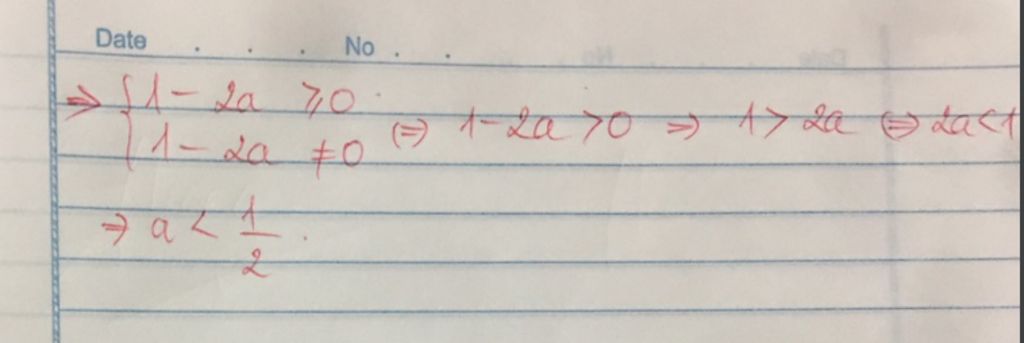 Date . . . No . .
⇒ { 1 - 2a ⩾ 0
1 - 2a ≠ 0 ⇔ 1 - 2a > 0 ⇒ 1 > 2a ⇔ 2a < 1
⇒ a < 1/2 .